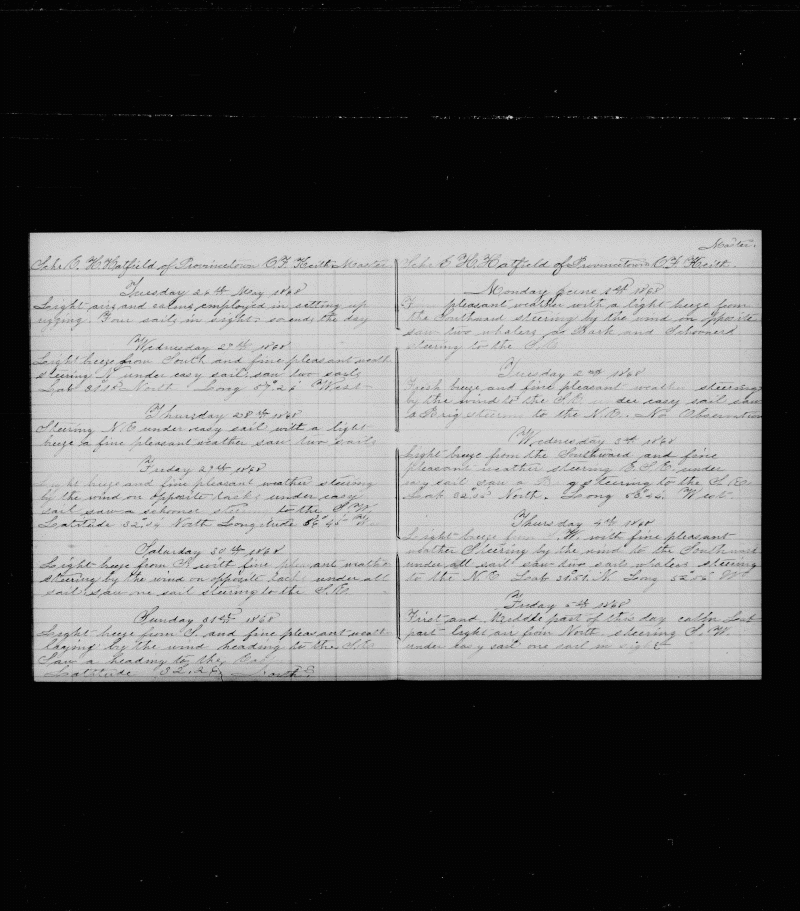 Schr E. H. Hatfield of Provincetown C. F. Keith Master
Tuesday 26th May 1868
Light airs and calms, employed in setting up
rigging. Four sails in sight. So ends the day
Wednesday 27th 1868
Light breeze from South and fine pleasant weath
steering N. under easy sail saw two sails
Lat 31.18 North Long 57.26 West
Thursday 28th 1868
Steering N.E under easy sail with a light
breeze & fine pleasant weather saw two sails
Friday 29th 1868
Light breeze and fine pleasant weather steering
by the wind on opposite tacks under easy
sail saw a schooner to the S.W.
Latitude 32.54 North Longitude 56.45
Saturday 30th 1868
Light breeze from with fine pleasant weather
steering by the wind on opposite tacks under all
sail saw one sail steering to the
Sunday 31st 1868
Light breeze from S. and fine pleasant weather
laying by the wind heading to the
Saw a heading to the East
Latitude 32.26 North
Master.
Schr E. H. Hatfield of Provincetown C. F. Keith.
Monday June 1st 1868
pleasant weather with a light breeze from
the Southward steering by the wind on opposite
saw two whalers a Bark and Schooner
steering to the
Tuesday 2nd 1868
Fresh breeze and fine pleasant weather steering
by the wind to the S.E. under easy sail saw
a Brig steering to the N.E. No Observation
Wednesday 3rd 1868
Light breeze from the Southward and fine
pleasant weather steering E.S.E. under
easy sail saw a steering to the
Lat 32.52 North. Long 56.42 West.
Thursday 4th 1868
Light breeze from W. with fine pleasant
weather Steering by the wind to the Southward
under all sail saw two sails whalers steering
to the N.E Lat 31.51 N Long 52.56 W
Friday 5th 1868
First and Middle part of this day calm Last
part light air from North steering S. W.
under easy sail one sail in sight